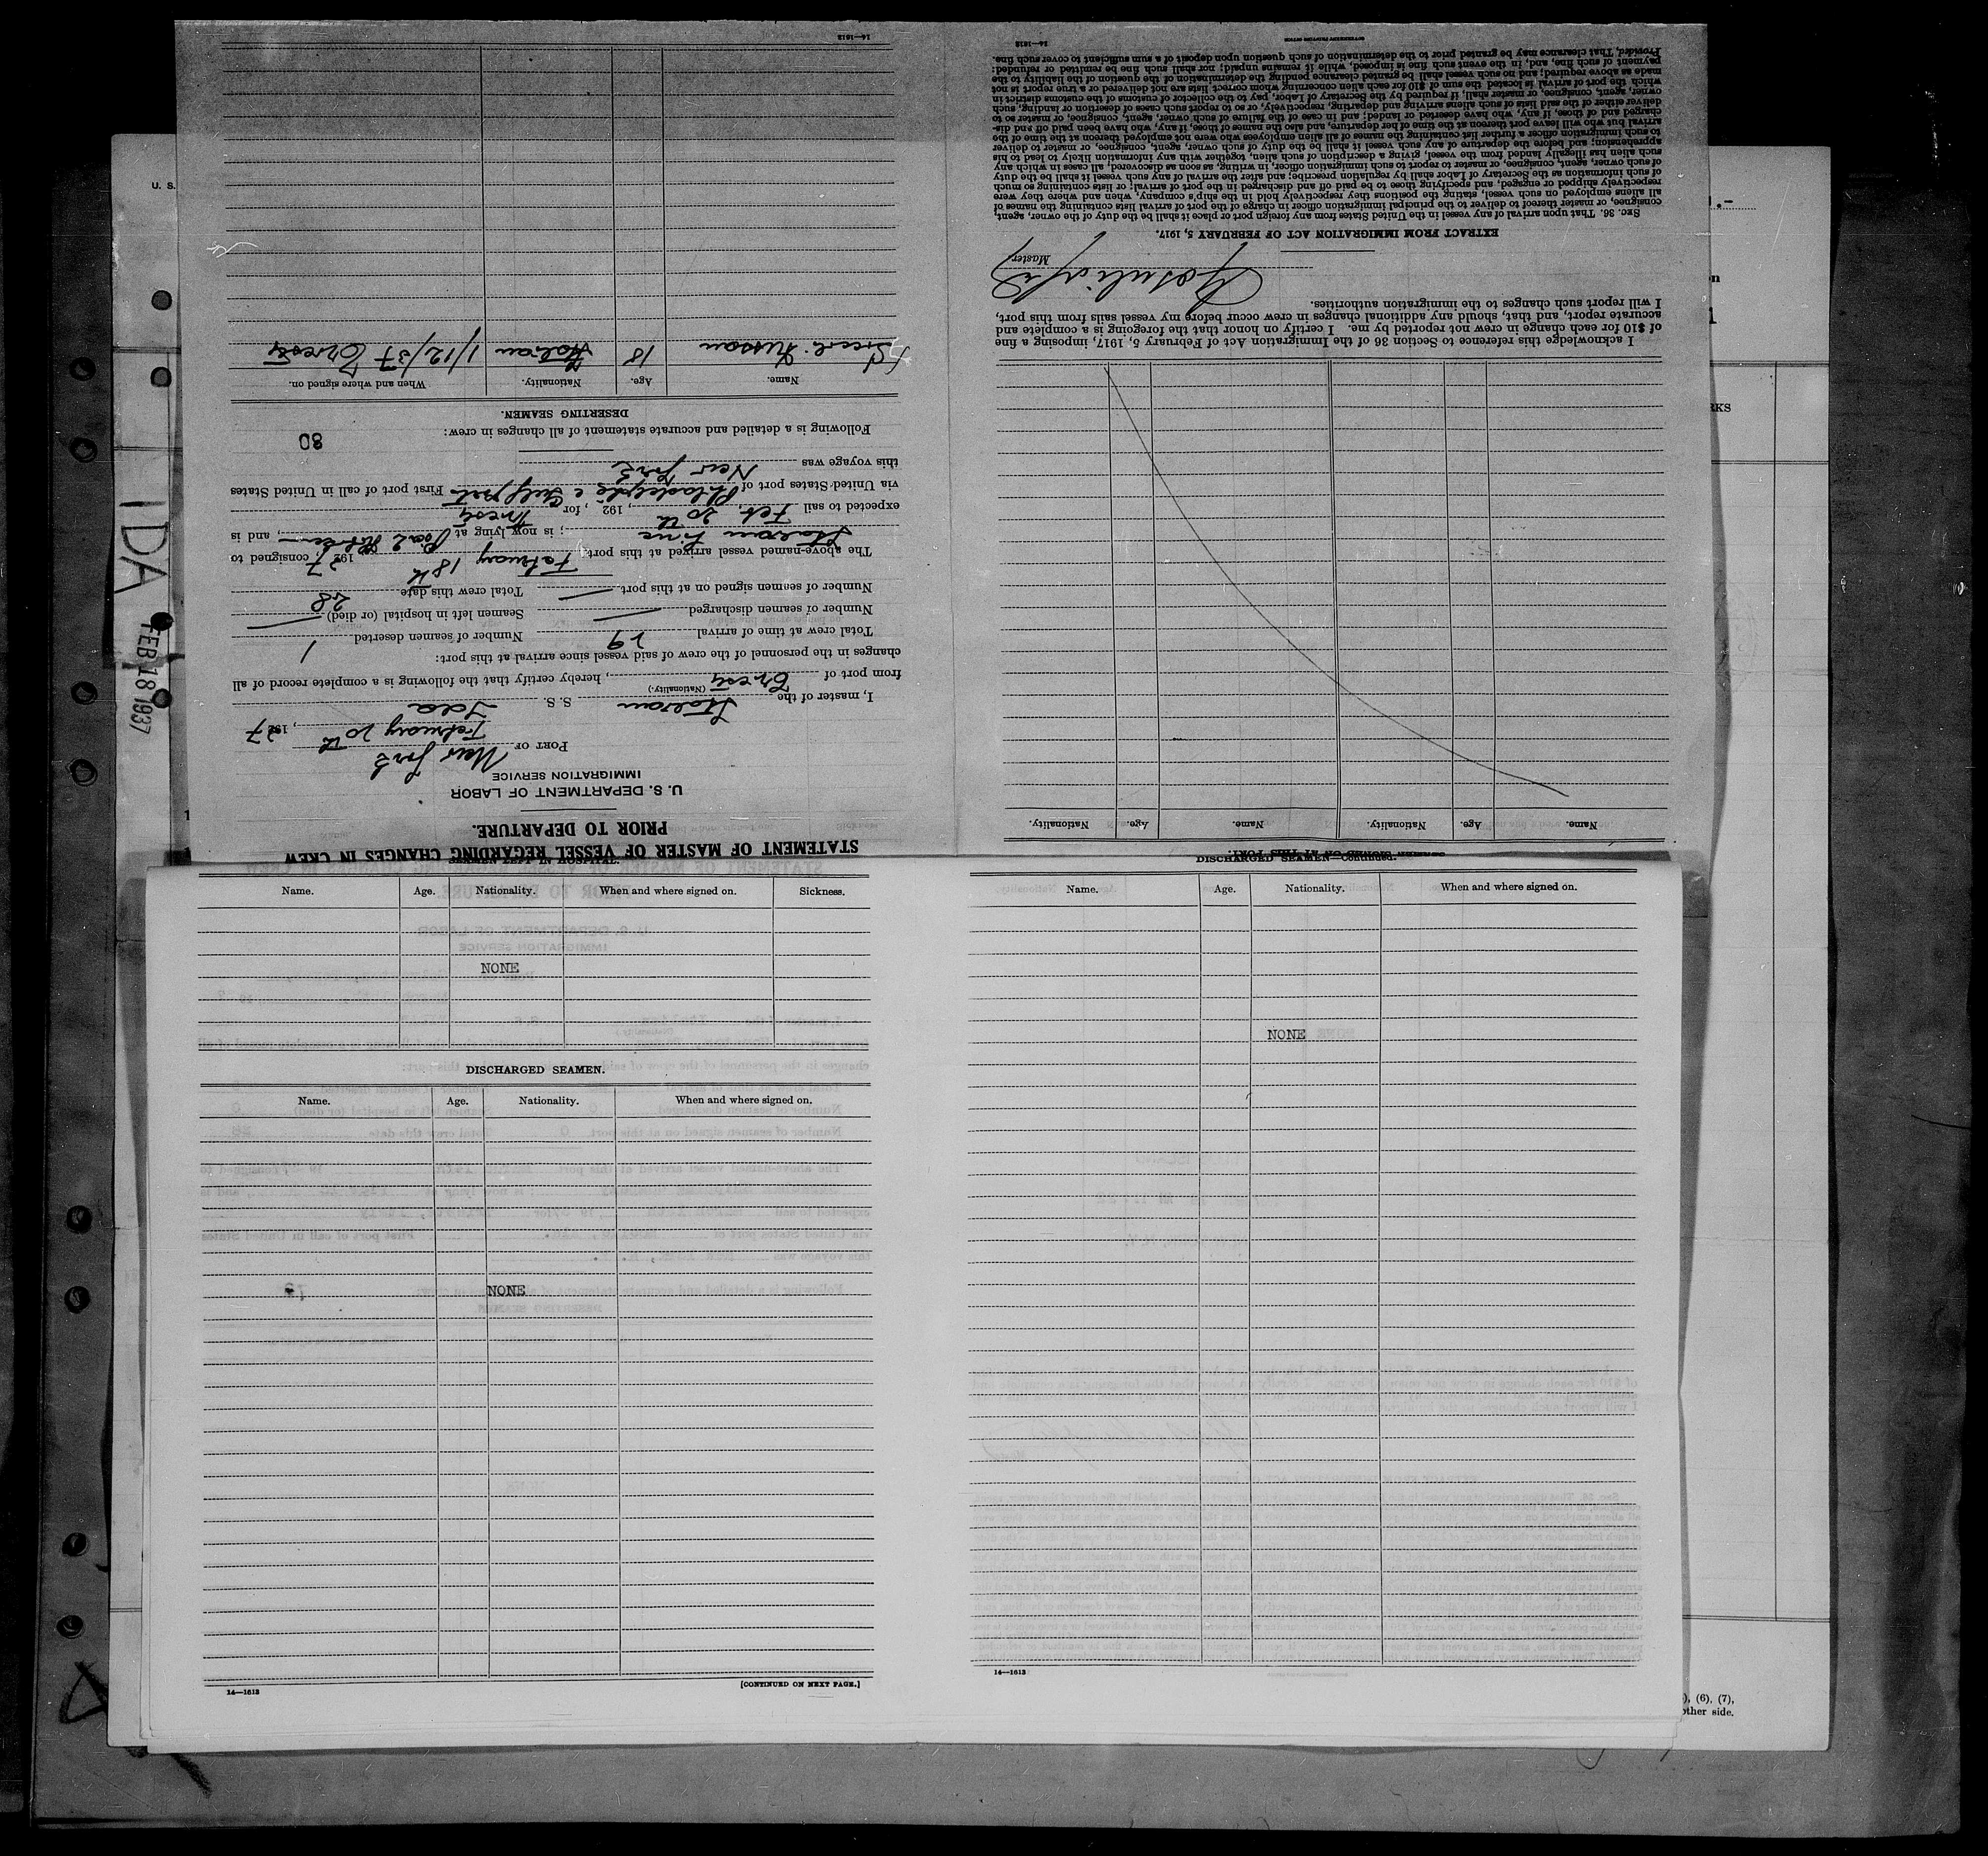 STATEMENT OF MASTER OF VESSEL REGARDING CHANGES IN CREW
PRIOR TO DEPARTURE.
U. S. DEPARTMENT OF LABOR
IMMIGRATION SERVICE
PORT OF New York
February 20th, 1937
I, master of the Italian S. S. Ida
(Nationality.)
from port of Trieste, hereby certify that the following is a complete record of all
changes in the personnel of the crew of said vessel since arrival at this port:
Total crew at time of arrival 29 Number of seamen deserted 1
Number of seamen discharged Seamen left in hospital (or died)
Number of seamen signed on at this port Total crew this date 28
The above-named vessel arrived at this port February 18th 1937 consigned to
Italian Line; is now lying at Hoboken, and is
expected to sail Feb. 20th, 192 , for Trieste
via United States port of Philadelphia First port of call in United States
this voyage was New York
Following is a detailed and accurate statement of all changes in crew:
80
DESERTING SEAMEN.
Name. Age. Nationality. When and where signed on.
18 Italian 1/12/37 Trieste
14—1613
SIGNED ON AT THIS PORT.
Name. Age. Nationality. Name. Age. Nationality.
I acknowledge this reference to Section 36 of the Immigration Act of February 5, 1917, imposing a fine
of $10 for each change in crew not reported by me. I certify on honor that the foregoing is a complete and
accurate report, and that, should any additional changes in crew occur before my vessel sails from this port,
I will report such changes to the immigration authorities.
Master.
EXTRACT FROM IMMIGRATION ACT OF FEBRUARY 5, 1917.
SEC. 36. That upon arrival of any vessel in the United States from any foreign port or place it shall be the duty of the owner, agent,
consignee, or master thereof to deliver to the principal immigration officer in charge of the port of arrival lists containing the names of
all aliens employed on such vessel, stating the positions they respectively hold in the ship's company, when and where they were
respectively shipped or engaged, and specifying those to be paid off and discharged in the port of arrival; or lists containing so much
of such information as the Secretary of Labor shall by regulation prescribe; and after the arrival of any such vessel it shall be the duty
of such owner, agent, consignee, or master to report to such immigration officer, in writing, as soon as discovered, all cases in which any
such alien has illegally landed from the vessel, giving a description of such alien, together with any information likely to lead to his
apprehension; and before the departure of any such vessel it shall be the duty of such owner, agent, consignee, or master to deliver
to such immigration officer a further list containing the names of all alien employees who were not employed thereon at the time of the
arrival but who will leave port thereon at the time of her departure, and also the names of those, if any, who have been paid off and dis-
charged and of those, if any, who have deserted or landed; and in case of the failure of such owner, agent, consignee, or master so to
deliver either of the said lists of such aliens arriving and departing, respectively, or so to report such cases of desertion or landing, such
owner, agent, consignee, or master shall, if required by the Secretary of Labor, pay to the collector of customs of the customs district in
which the port of arrival is located the sum of $10 for each alien concerning whom correct lists are not delivered or a true report is not
made as above required; and no such vessel shall be granted clearance pending the determination of the question of the liability to the
payment of such fine, and, in the event such fine is imposed, while it remains unpaid; nor shall such fine be remitted or refunded:
Provided, That clearance may be granted prior to the determination of such question upon deposit of a sum sufficient to cover such fine.
14—1613
U. S.
IDA
FEB 18 1937
RKS
SEAMEN LEFT IN HOSPITAL.
Name. Age. Nationality. When and where signed on. Sickness.
NONE
DISCHARGED SEAMEN.
Name. Age. Nationality. When and where signed on.
NONE
14—1613 [CONTINUED ON NEXT PAGE.]
DISCHARGED SEAMEN—Continued.
Name. Age. Nationality. When and where signed on.
NONE
14—1613
), (6), (7),
other side.